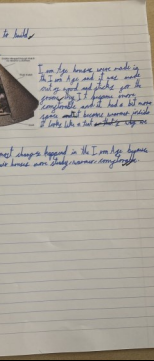 to build
Iron Age houses were made in
the Iron Age and it was made
out of wood and sticks for the
It became more
comfortable and it had a bit more
space and became warmer inside
it looks like a tent
most changes happened in the Iron Age because
houses were sturdy, warmer, comfortable